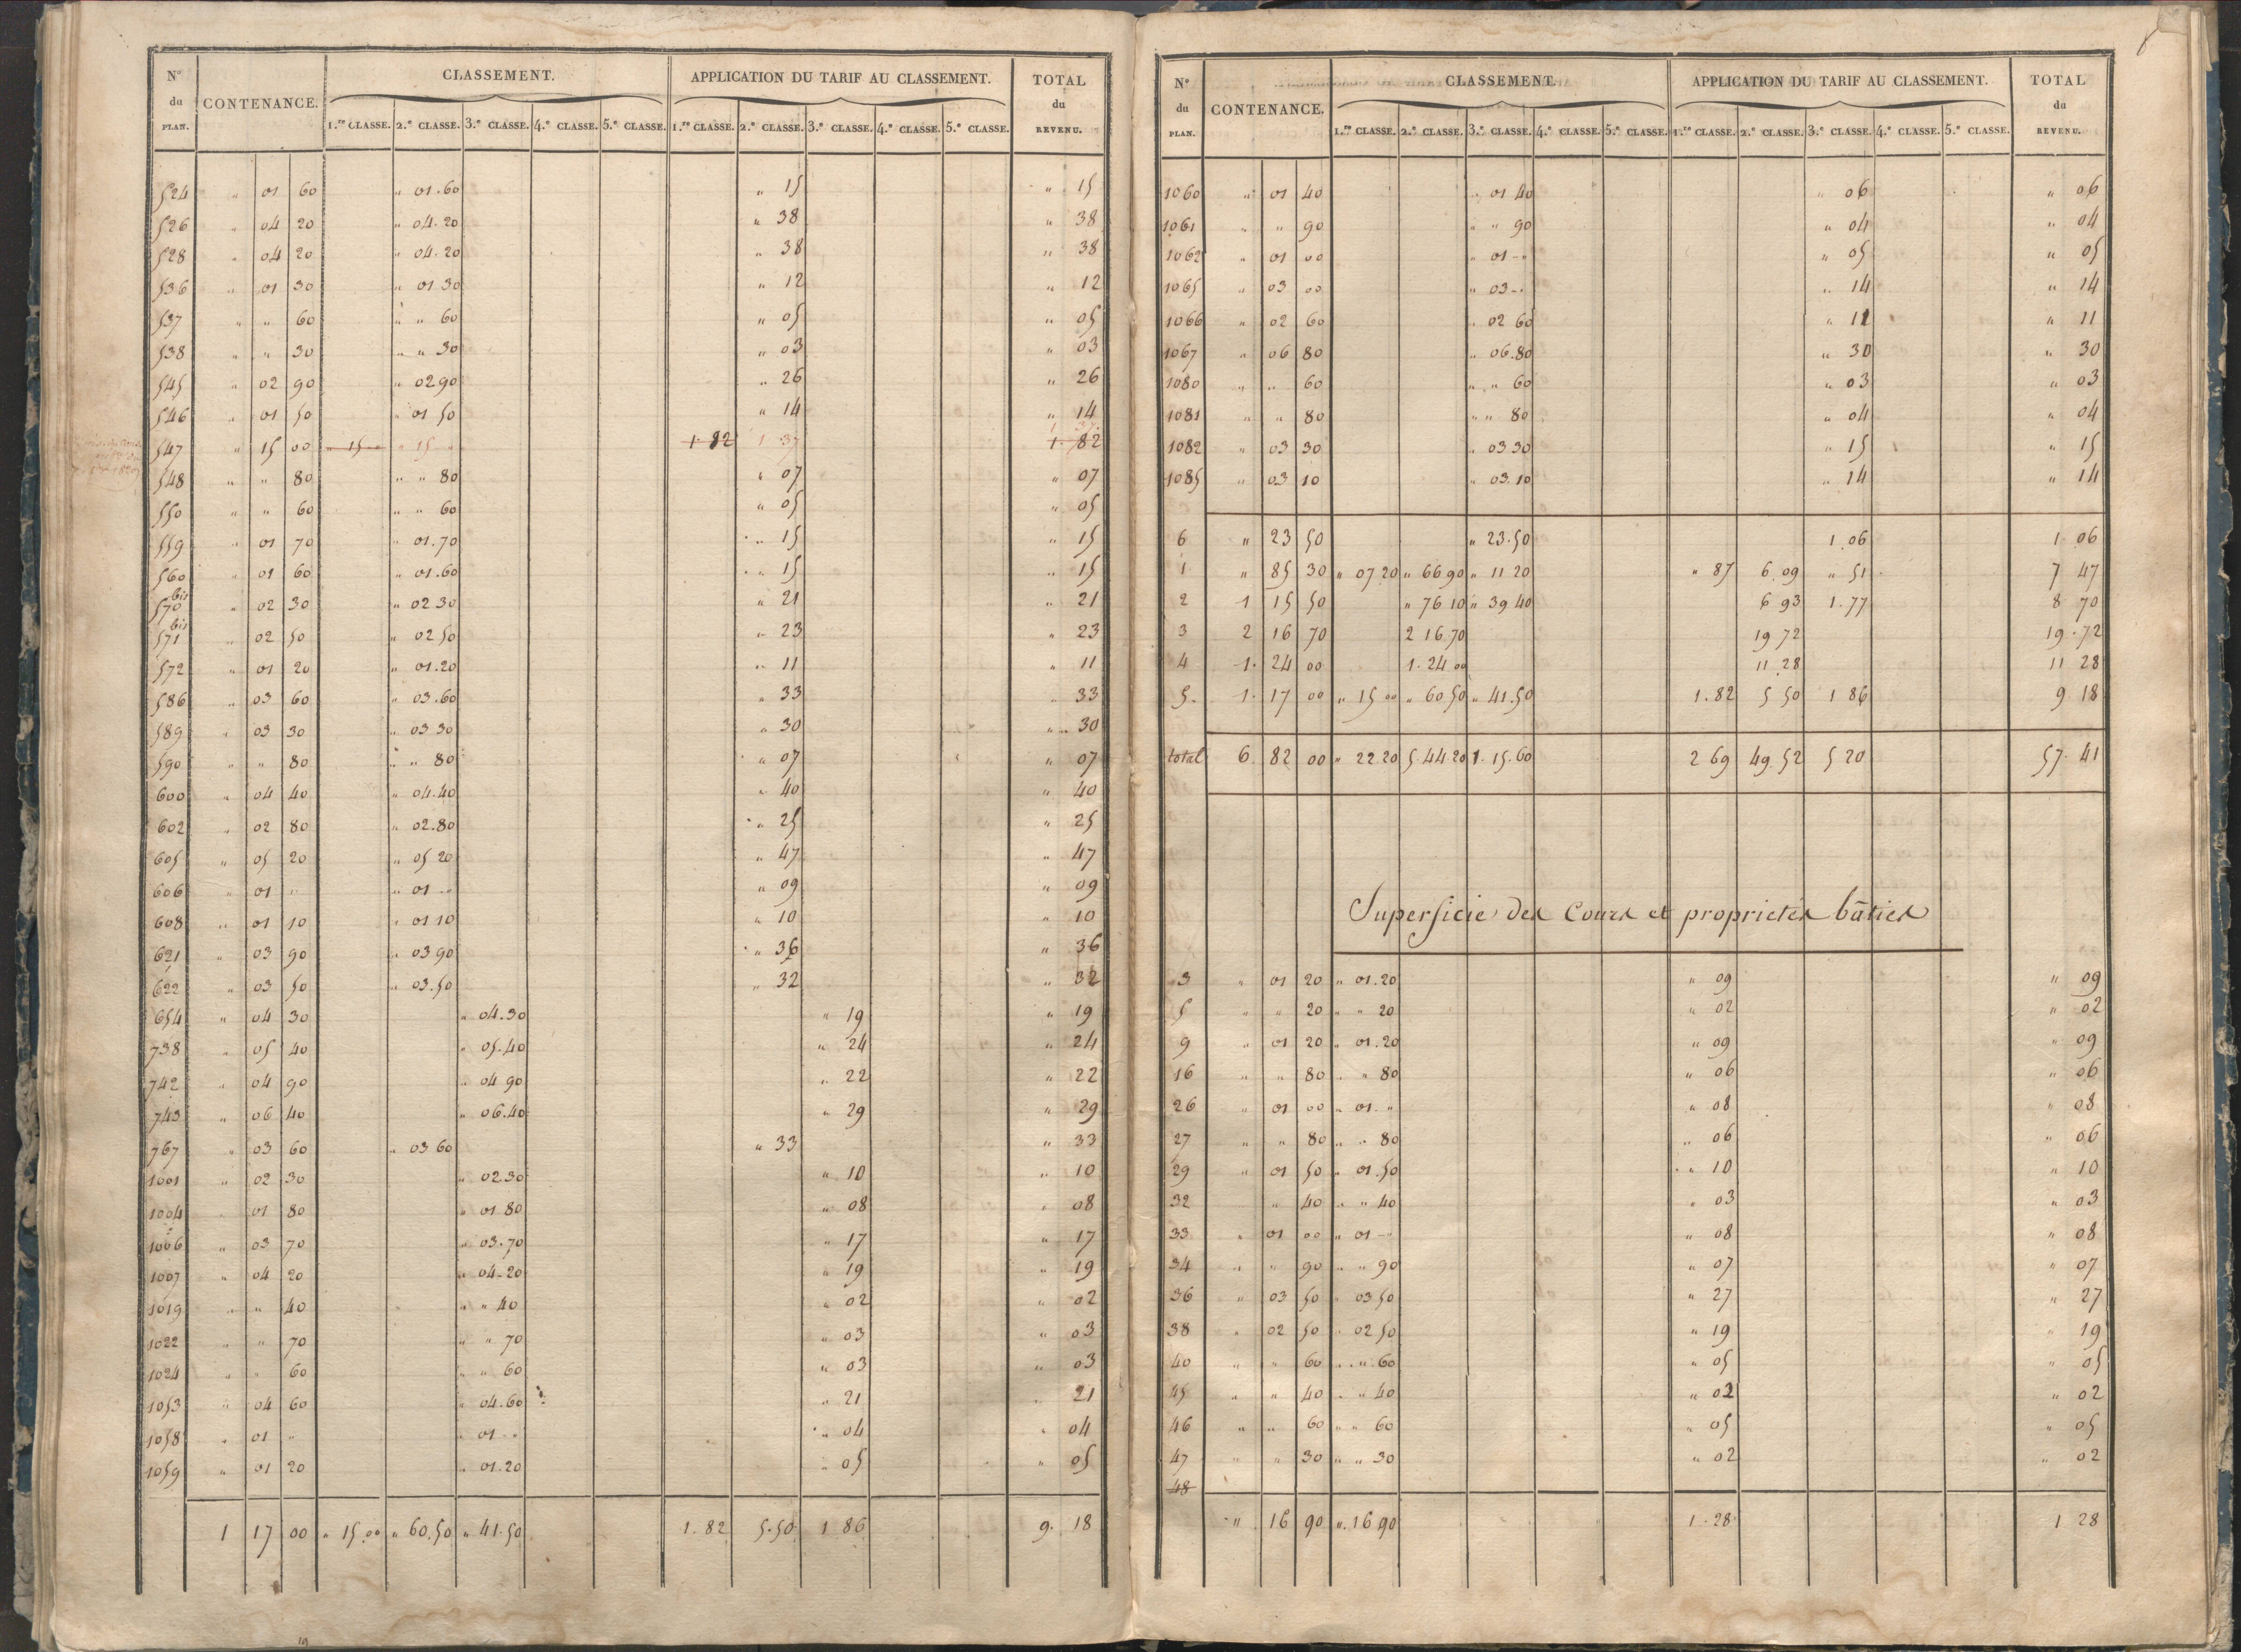 N° du PLAN. CONTENANCE. CLASSEMENT. APPLICATION DU TARIF AU CLASSEMENT. TOTAL du REVENU.
1.re CLASSE. 2.e CLASSE. 3.e CLASSE. 4.e CLASSE. 5.e CLASSE. 1.re CLASSE. 2.e CLASSE. 3.e CLASSE. 4.e CLASSE. 5.e CLASSE.
524 " 01 60 " 01.60 " 15 " 15
526 " 04 20 " 04.20 " 38 " 38
528 " 04 20 " 04.20 " 38 " 38
536 " 01 30 " 01 30 " 12 " 12
537 " " 60 " " 60 " 05 " 05
538 " " 30 " " 30 " 03 " 03
545 " 02 90 " 02 90 " 26 " 26
546 " 01 50 " 01 50 " 14 " 14
547 " 15 00 " 15 00 " 15 " 1.82 1.37 1.37 1.82
548 " " 80 " " 80 " 07 " 07
550 " " 60 " " 60 " 05 " 05
559 " 01 70 " 01.70 " 15 " 15
560 " 01 60 " 01.60 " 15 " 15
570 bis " 02 30 " 02 30 " 21 " 21
571 bis " 02 50 " 02 50 " 23 " 23
572 " 01 20 " 01.20 " 11 " 11
586 " 03 60 " 03.60 " 33 " 33
589 " 03 30 " 03 30 " 30 " 30
590 " " 80 " " 80 " 07 " 07
600 " 04 40 " 04.40 " 40 " 40
602 " 02 80 " 02.80 " 25 " 25
605 " 05 20 " 05 20 " 47 " 47
606 " 01 " " 01 " " 09 " 09
608 " 01 10 " 01 10 " 10 " 10
621 " 03 90 " 03.90 " 36 " 36
622 " 03 50 " 03.50 " 32 " 32
654 " 04 30 " 04.30 " 19 " 19
738 " 05 40 " 05.40 " 24 " 24
742 " 04 90 " 04 90 " 22 " 22
743 " 06 40 " 06.40 " 29 " 29
767 " 03 60 " 03 60 " 33 " 33
1001 " 02 30 " 02.30 " 10 " 10
1004 " 01 80 " 01 80 " 08 " 08
1006 " 03 70 " 03.70 " 17 " 17
1007 " 04 20 " 04-20 " 19 " 19
1019 " " 40 " " 40 " 02 " 02
1022 " " 70 " " 70 " 03 " 03
1024 " " 60 " " 60 " 03 " 03
1053 " 04 60 " 04.60 " 21 " 21
1058 " 01 " " 01 " " 04 " 04
1059 " 01 20 " 01.20 " 05 " 05
1 17 00 " 15.00 " 60.50 " 41.50 1.82 5.50 1 86 9. 18
N° du PLAN. CONTENANCE. CLASSEMENT. APPLICATION DU TARIF AU CLASSEMENT. TOTAL du REVENU.
1.re CLASSE. 2.e CLASSE. 3.e CLASSE. 4.e CLASSE. 5.e CLASSE. 1.re CLASSE. 2.e CLASSE. 3.e CLASSE. 4.e CLASSE. 5.e CLASSE.
1060 " 01 40 " 01 40 " 06 " 06
1061 " " 90 " " 90 " 04 " 04
1062 " 01 00 " 01 - " " 05 " 05
1065 " 03 00 " 03 - " " 14 " 14
1066 " 02 60 " 02 60 " 11 " 11
1067 " 06 80 " 06.80 " 30 " 30
1080 " " 60 " " 60 " 03 " 03
1081 " " 80 " " 80 " 04 " 04
1082 " 03 30 " 03 30 " 15 " 15
1085 " 03 10 " 03.10 " 14 " 14
6 " 23 50 " 23.50 1.06 1.06
1 " 85 30 " 07 20 " 66 90 " 11 20 " 87 6.09 " 51 7 47
2 1 15 50 " 76 10 " 39 40 6 93 1.77 8 70
3 2 16 70 2 16.70 19 72 19.72
4 1. 24 00 1.24 00 11 28 11 28
5. 1. 17 00 " 15 00 " 60 50 " 41.50 1.82 5 50 1 86 9 18
total 6 82 00 " 22.20 5.44 20 1.15.60 2 69 49.52 5 20 57. 41
Superficie des Cours et propriétés bâties
3 " 01 20 " 01.20 " 09 " 09
5 " " 20 " " 20 " 02 " 02
9 " 01 20 " 01.20 " 09 " 09
16 " " 80 " " 80 " 06 " 06
26 " 01 00 " 01. " " 08 " 08
27 " " 80 " " 80 " 06 " 06
29 " 01 50 " 01.50 " 10 " 10
32 " 40 " " 40 " 03 " 03
33 " 01 00 " 01 - " " 08 " 08
34 " " 90 " " 90 " 07 " 07
36 " 03 50 " 03 50 " 27 " 27
38 " 02 50 " 02 50 " 19 " 19
40 " " 60 " " 60 " 05 " 05
45 " " 40 " " 40 " 02 " 02
46 " " 60 " " 60 " 05 " 05
47 " " 30 " " 30 " 02 " 02
48
" 16 90 " 16 90 1.28 1 28